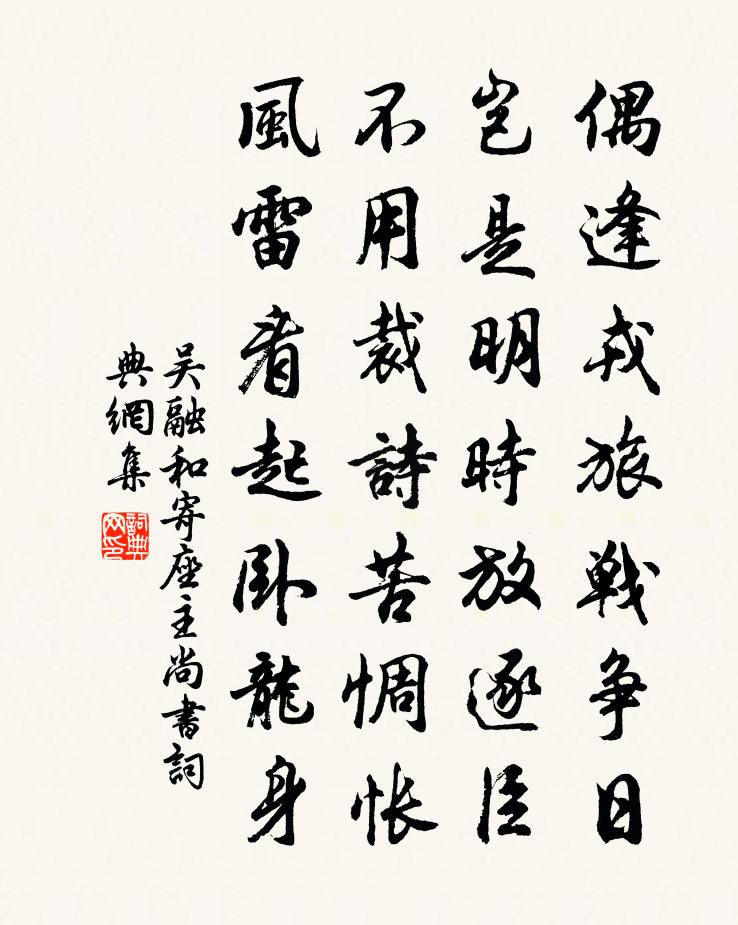 偶逢戎旅戰爭日
豈是明時放逐臣
不用裁詩苦惆悵
風雷看起臥龍身
吴融和寄座主尚書詞
典網集
詞典
网印